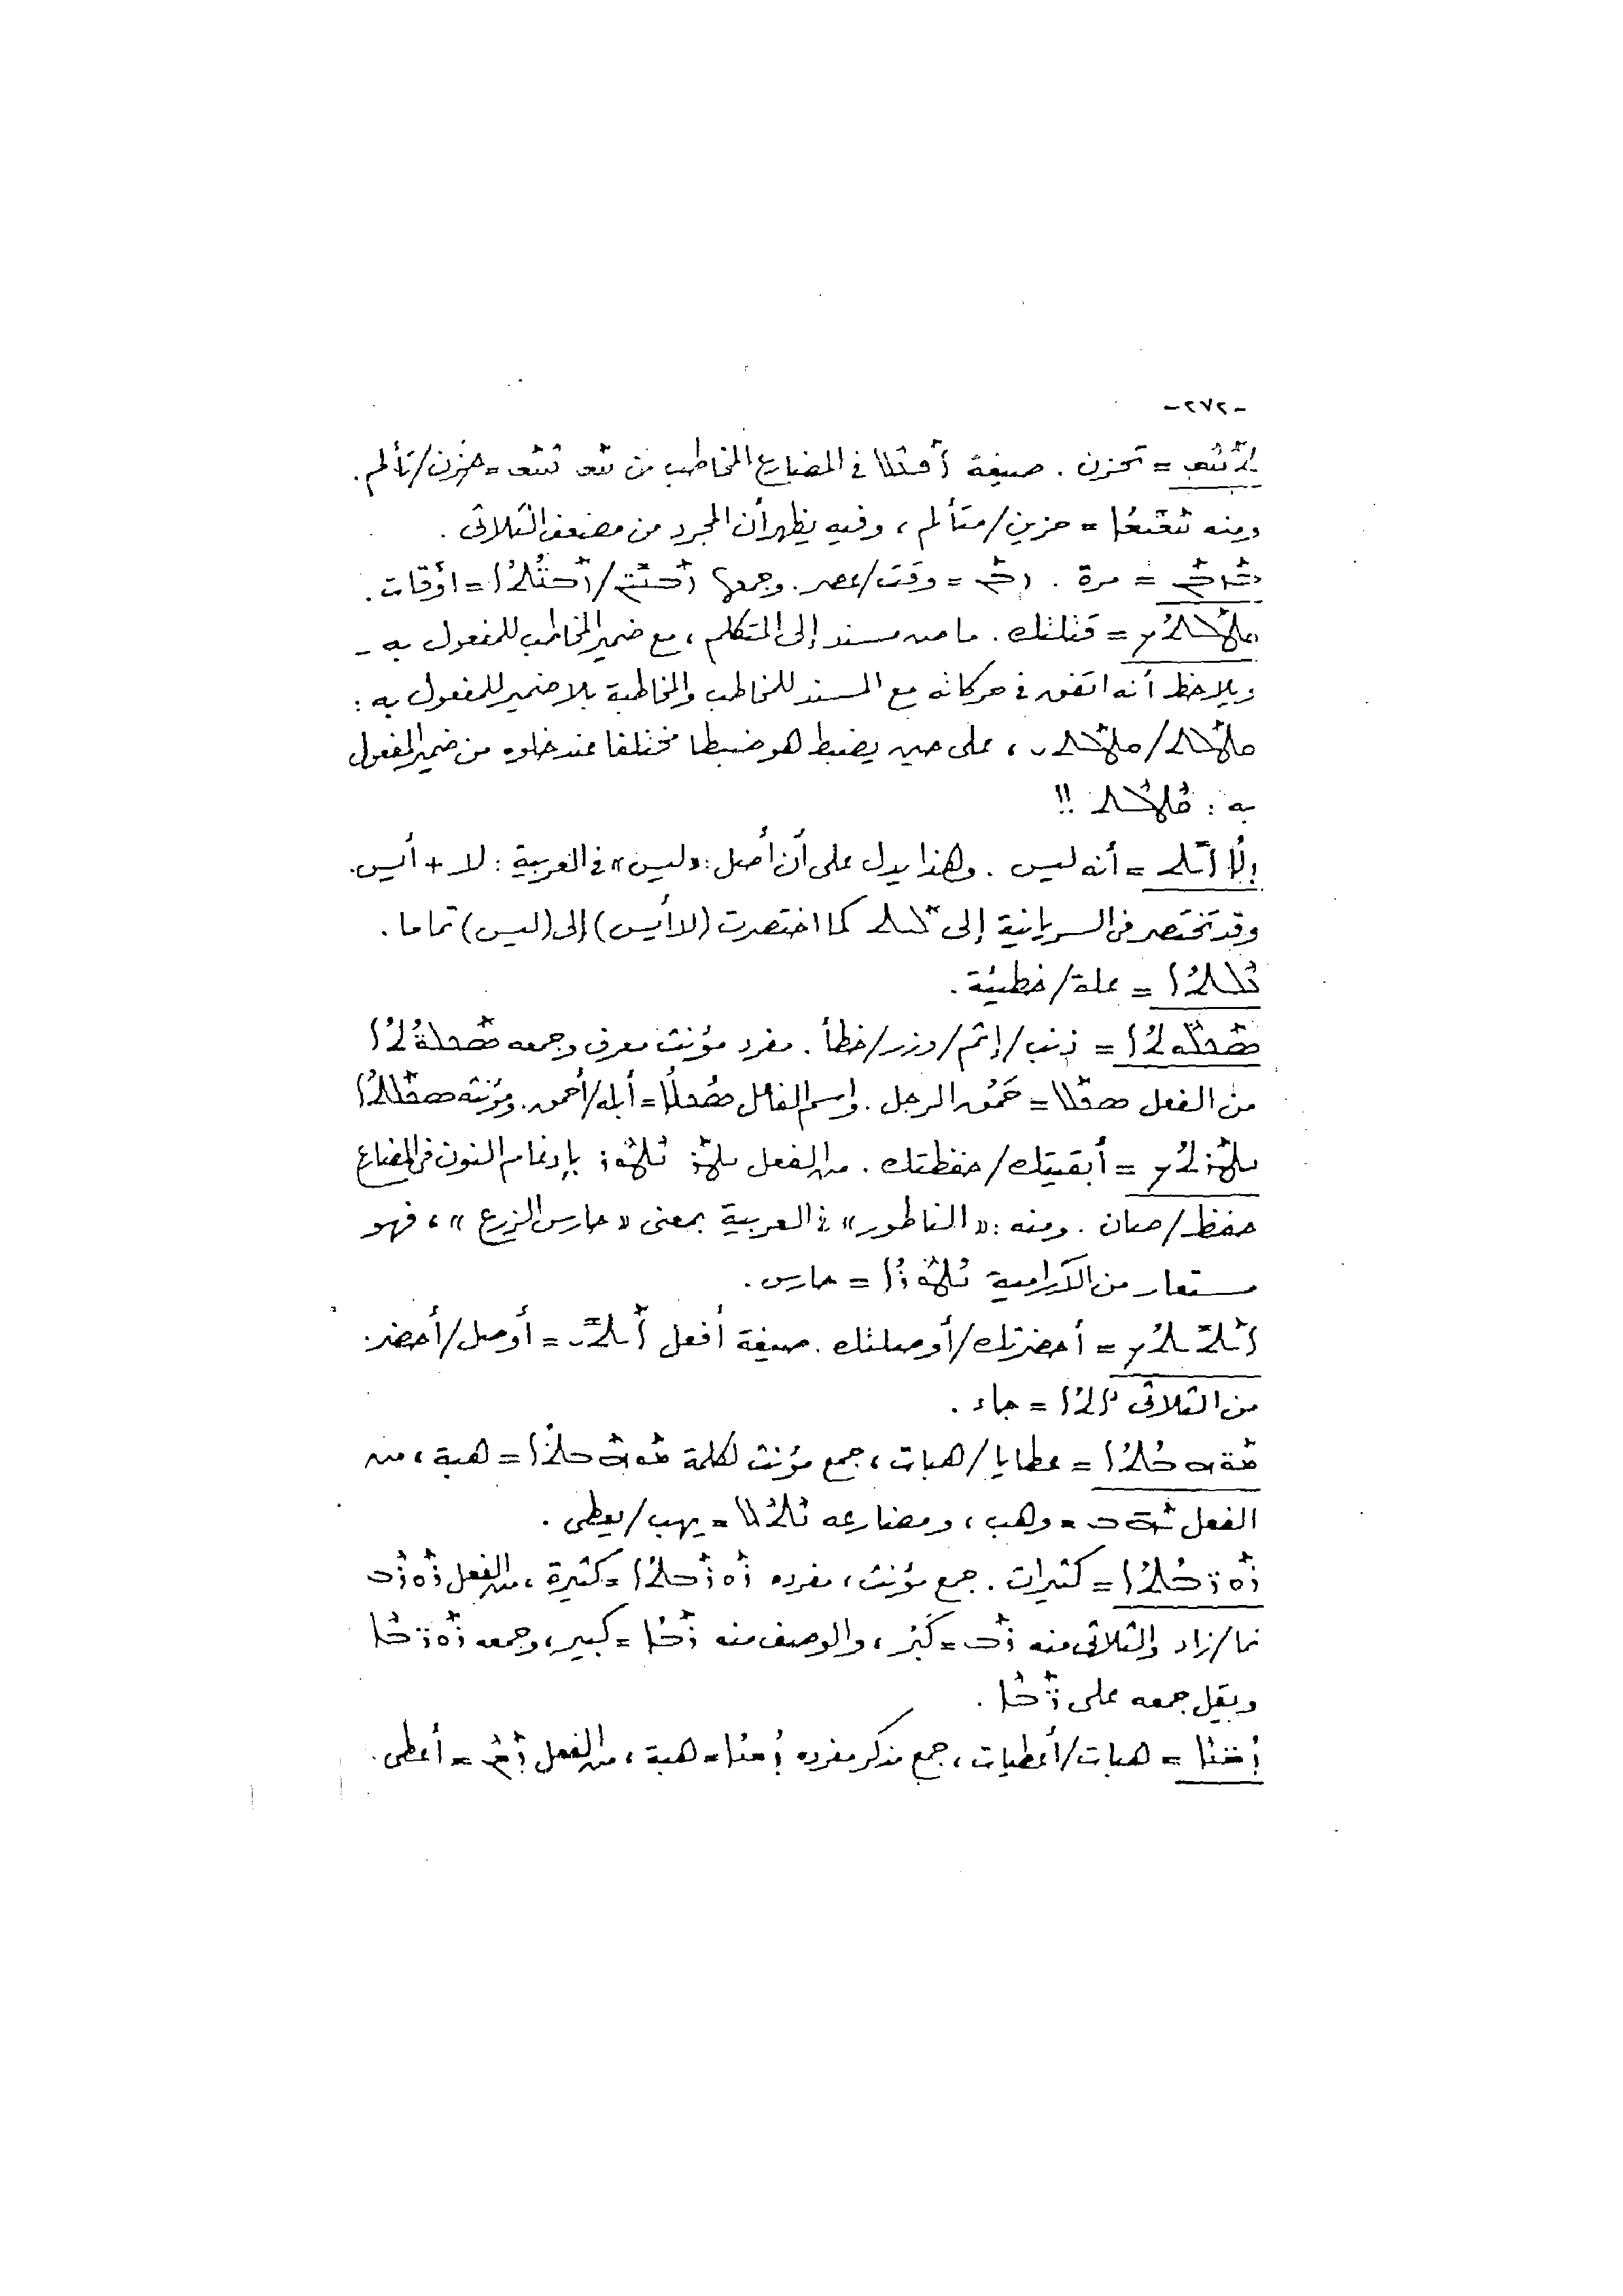 -٢٧٢-
= تحزن . صيغة في المضارع المخاطب من = حزن/تألم .
ومنه = حزين/متألم ، وفيه يظهر أن المجرد من مضعف الثلاثى .
= مرة . ܙܒܢ = وقت/عصر . وجمعها / = أوقات .
ܩܛܠܬܟ = قتلتك . ماض مسند إلى المتكلم ، مع ضمير المخاطب للمفعول به -
ويلاحظ أنه اتفق في حركاته مع المسند للمخاطب والمخاطبة بلا ضمير للمفعول به :
ܩܛܠܬ/ܩܛܠܬܝ ، على حين يضبط هو ضبطا مختلفا عند خلوه من ضمير المفعول
به : ܩܛܠܬ !!
ܕܠܐ ܐܝܬ = أنه ليس . وهذا يدل على أن أصل : «ليس» في العربية : لا + أيس .
وقد تختصر في السريانية إلى ܠܝܬ كما اختصرت (لا أيس) إلى (ليس) تماما .
ܥܠܬܐ = علة/خطيئة .
ܣܟܠܘܬܐ = ذنب/إثم/وزر/خطأ . مفرد مؤنث معرف وجمعه
من الفعل ܣܟܠ = حَمُق الرجل . واسم الفاعل ܣܟܠܐ = أبله/أحمق . ومؤنثه ܣܟܠܬܐ
ܢܛܪܬܟ = أبقيتك/حفظتك . من الفعل ܢܛܪ ܢܛܪ بإدغام النون في المضارع
حفظ/صان . ومنه : «الناطور» في العربية بمعنى «حارس الزرع» ، فهو
مستعار من الآرامية ܢܛܘܪܐ = حارس .
ܐܝܬܝܬܟ = أحضرتك/أوصلتك . صيغة أفعل ܐܝܬܝ = أوصل/أحضر .
من الثلاثى ܐܬܐ = جاء .
ܡܘܗܒܬܐ = عطايا/هبات ، جمع مؤنث لكلمة ܡܘܗܒܬܐ = هبة ، من
الفعل ܝܗܒ = وهب ، ومضارعه ܢܬܠ = يهب/يعطى .
ܪܘܪܒܬܐ = كثيرات . جمع مؤنث ، مفرده ܪܘܪܒܬܐ = كثيرة ، من الفعل ܪܘܪܒ
نما/زاد والثلاثى منه ܪܒ = كَبُر ، والوصف منه ܪܒܐ = كبير ، وجمعه ܪܘܪܒܐ
ويقل جمعه على ܪܒܐ .
= هبات/أعطيات ، جمع مذكر مفرده = هبة ، من الفعل = أعطى .